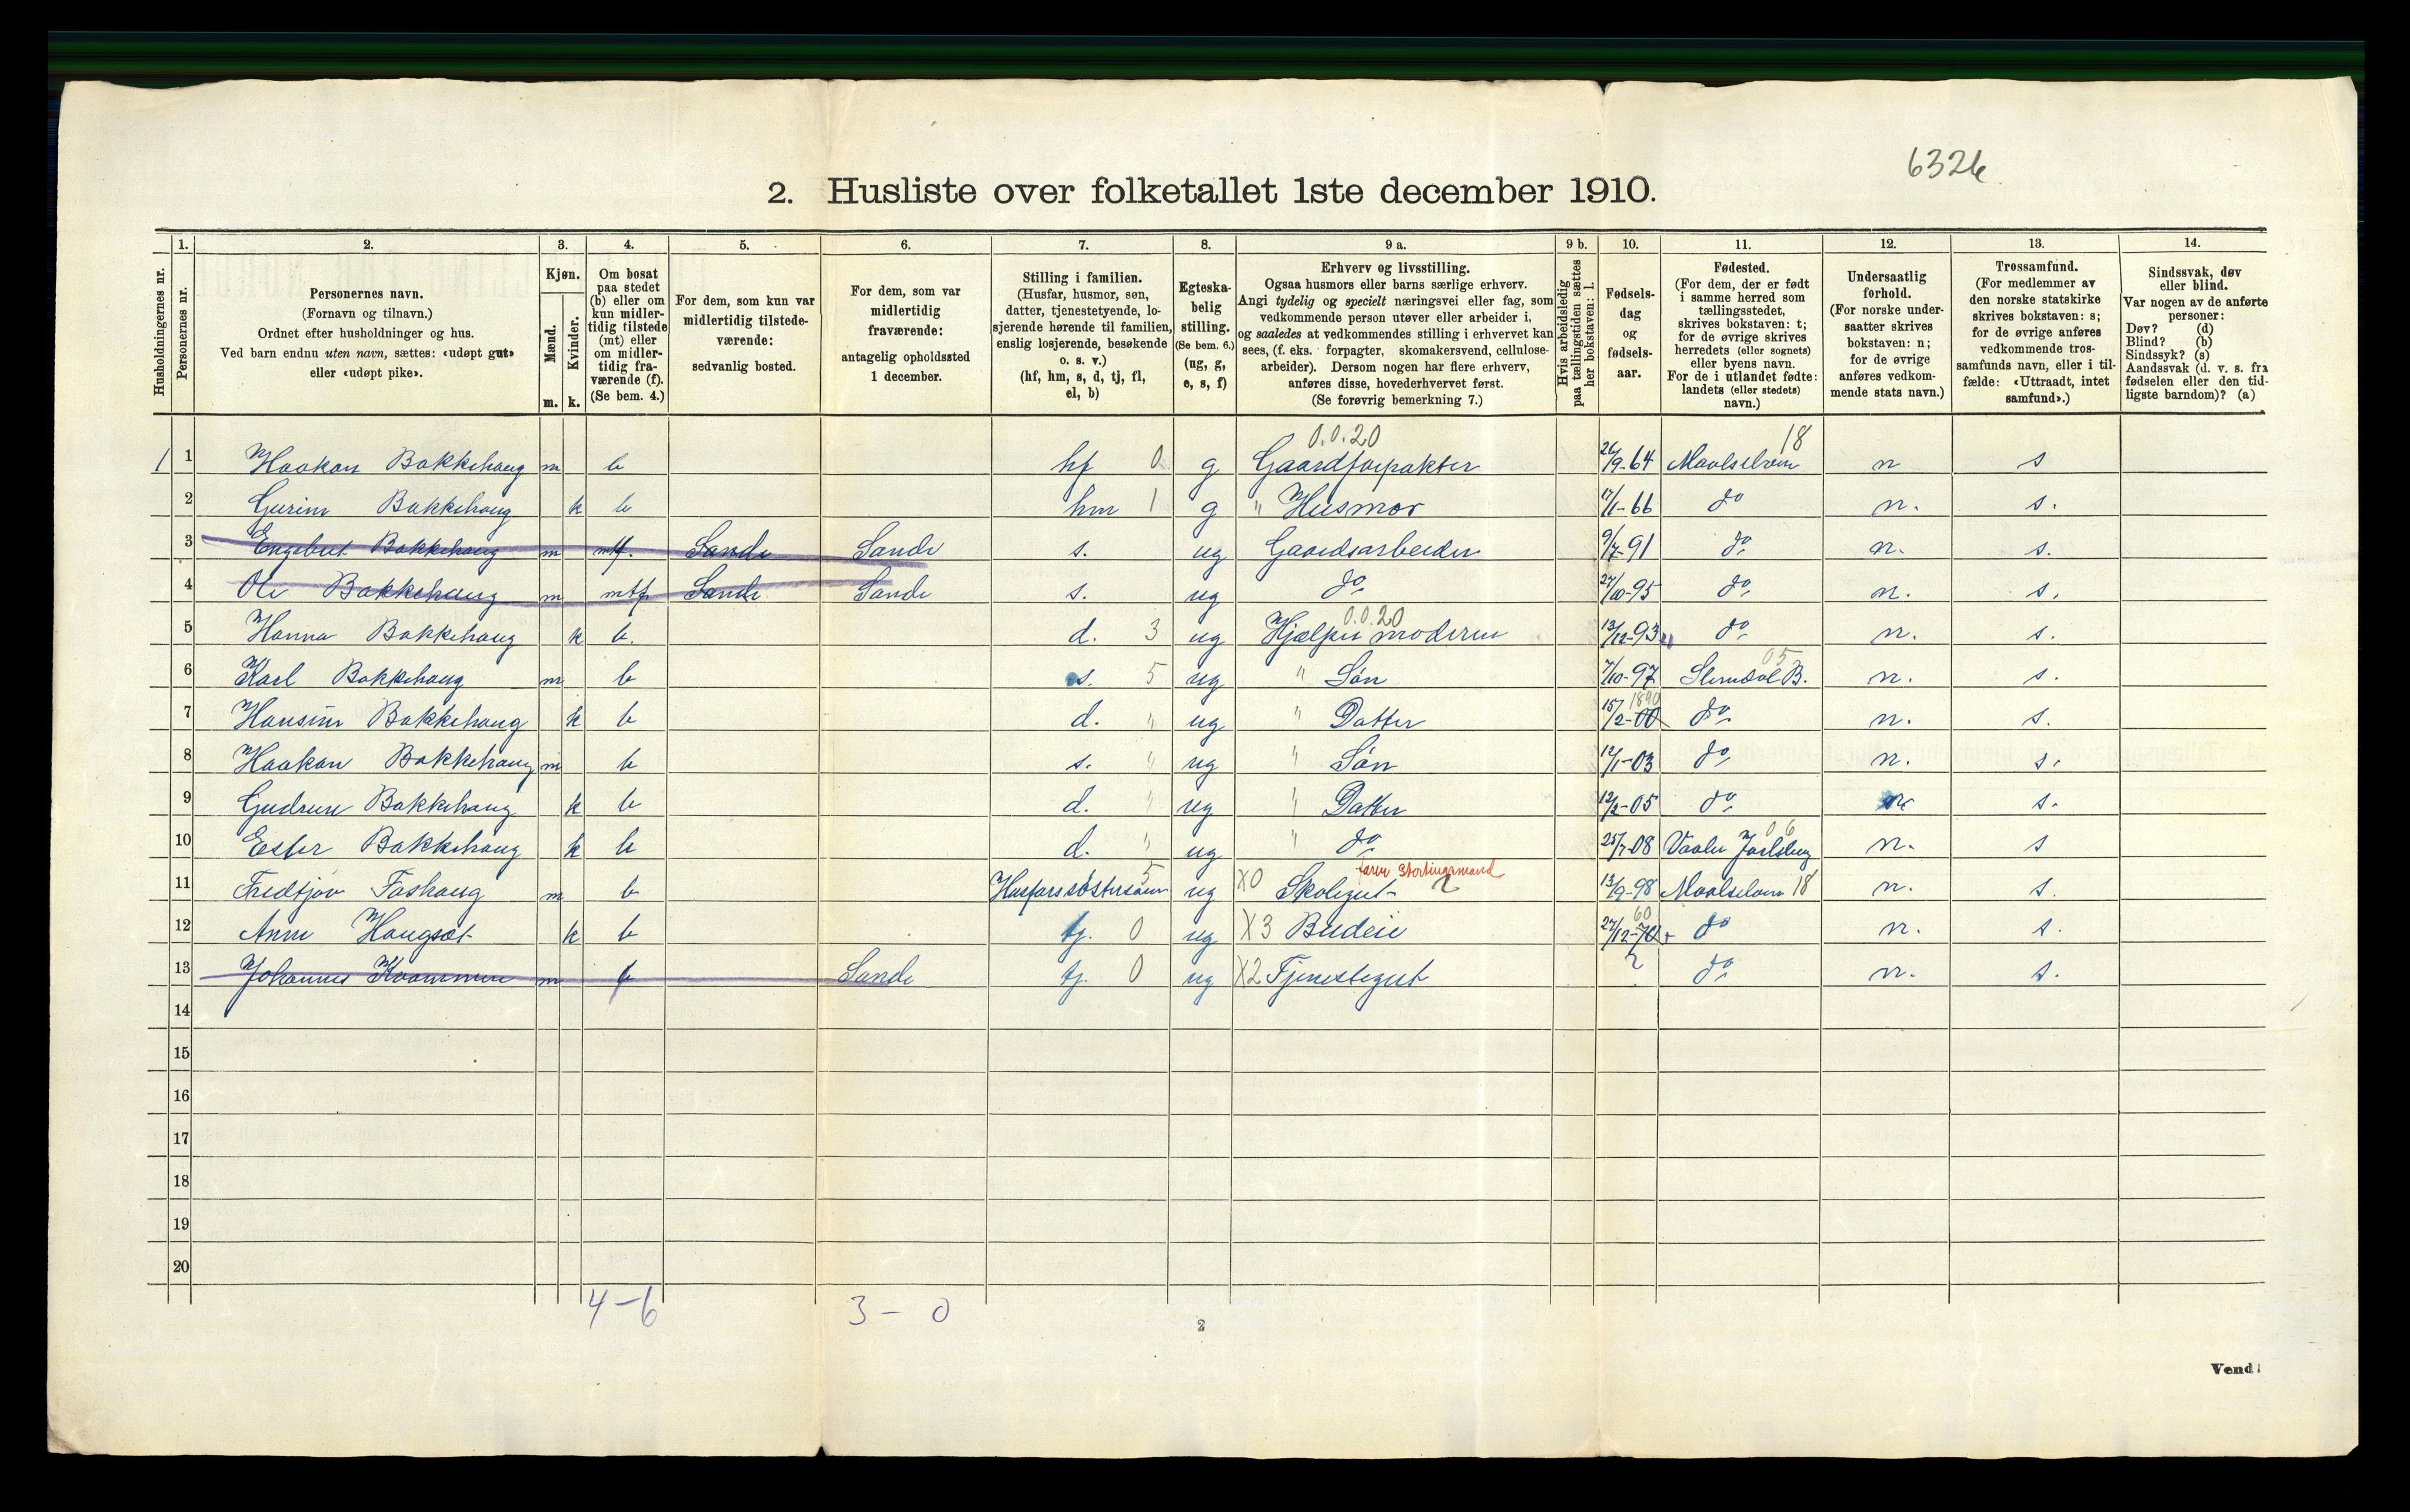 6326
2. Husliste over folketallet 1ste december 1910.
Husholdningernes nr.
1. Personernes nr.
2. Personernes navn. (Fornavn og tilnavn.) Ordnet efter husholdninger og hus. Ved barn endnu uten navn, sættes: «udøpt gut» eller «udøpt pike».
3. Kjøn. Mænd. m. Kvinder. k.
4. Om bosat paa stedet (b) eller om kun midlertidig tilstede (mt) eller om midlertidig fraværende (f). (Se bem. 4.)
5. For dem, som kun var midlertidig tilstedeværende: sedvanlig bosted.
6. For dem, som var midlertidig fraværende: antagelig opholdssted 1 december.
7. Stilling i familien. (Husfar, husmor, søn, datter, tjenestetyende, losjerende hørende til familien, enslig losjerende, besøkende o. s. v.) (hf, hm, s, d, tj, fl, el, b)
8. Egteskabelig stilling. (Se bem. 6.) (ug, g, e, s, f)
9 a. Erhverv og livsstilling. Ogsaa husmors eller barns særlige erhverv. Angi tydelig og specielt næringsvei eller fag, som vedkommende person utøver eller arbeider i, og saaledes at vedkommendes stilling i erhvervet kan sees, (f. eks. forpagter, skomakersvend, cellulosearbeider). Dersom nogen har flere erhverv, anføres disse, hovederhvervet først. (Se forøvrig bemerkning 7.)
9 b. Hvis arbeidsledig paa tællingstiden sættes her bokstaven: l.
10. Fødselsdag og fødselsaar.
11. Fødested. (For dem, der er født i samme herred som tællingsstedet, skrives bokstaven: t; for de øvrige skrives herredets (eller sognets) eller byens navn. For de i utlandet fødte: landets (eller stedets) navn.)
12. Undersaatlig forhold. (For norske undersaatter skrives bokstaven: n; for de øvrige anføres vedkommende stats navn.)
13. Trossamfund. (For medlemmer av den norske statskirke skrives bokstaven: s; for de øvrige anføres vedkommende trossamfunds navn, eller i tilfælde: «Uttraadt, intet samfund».)
14. Sindssvak, døv eller blind. Var nogen av de anførte personer: Døv? (d) Blind? (b) Sindssyk? (s) Aandssvak (d. v. s. fra fødselen eller den tidligste barndom)? (a)
0.0.20 18
1 1 Haakon Bakkehaug m b hf 0 g Gaardforpakter 26/9-64 Maalselven n s
2 Gurine Bakkehaug k b hm 1 g " Husmor 17/1-66 do n. s.
3 Engebret Bakkehaug m mtf. Sande Sande s. ug Gaardsarbeider 9/7-91 do n. s.
4 Ole Bakkehaug m mtf Sande Sande s. ug do 27/10-95 do n. s.
0.0.20
5 Hanna Bakkehaug k b. d. 3 ug Hjælper moderen 13/12-93 do n. s.
05
6 Karl Bakkehaug m b s. 5 ug " Søn 7/10-97 Slemdal B. n. s.
1890
7 Hansine Bakkehaug k b d. " ug " Datter 15/2-00 do n. s.
8 Haakon Bakkehaug m b s. " ug " Søn 12/1-03 do n. s.
9 Gudrun Bakkehaug k b d. " ug " Datter 12/2-05 do n. s.
06
10 Ester Bakkehaug k b d. " ug " do 25/7-08 Vaaler Jarlsberg n. s
faren Stortingsmand
11 Fredtjov Foshaug m b Husfars søstersøn 5 ug X0 Skolegut 2 13/9-98 Maalselven 18 n. s.
60
12 Anne Haugsæt k b tj. 0 ug X3 Budeie 27/12-70 do n. s.
13 Johannes Kvammen m b Sande tj. 0 ug X2 Tjenestegut ? do n. s.
14
15
16
17
18
19
20
4-6 3-0
2
Vend!